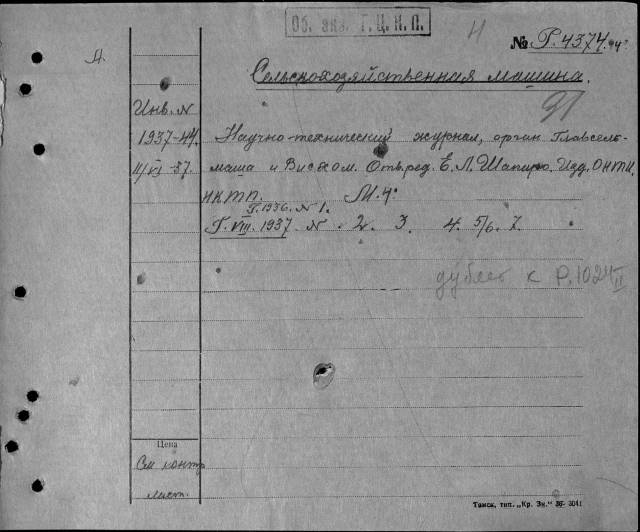 Об. экз. Г.Ц.К.П.
№ Р.4374.
Сельскохозяйственная машина.
Инв. N
1937-44.
11/VI-37.
Научно-технический журнал, орган Главсель-
маша и Висхом. Отв. ред. Е. Л. Шапиро. Изд. ОНТИ
НКТП. М. 4°
Г. 1936. N 1.
Г. VIII. 1937. N 2. 3. 4. 5/6. 7.
дублет к Р.1024 II
Цена
См. контр
лист.
Томск, тип. „Кр. Зн." 36-3041